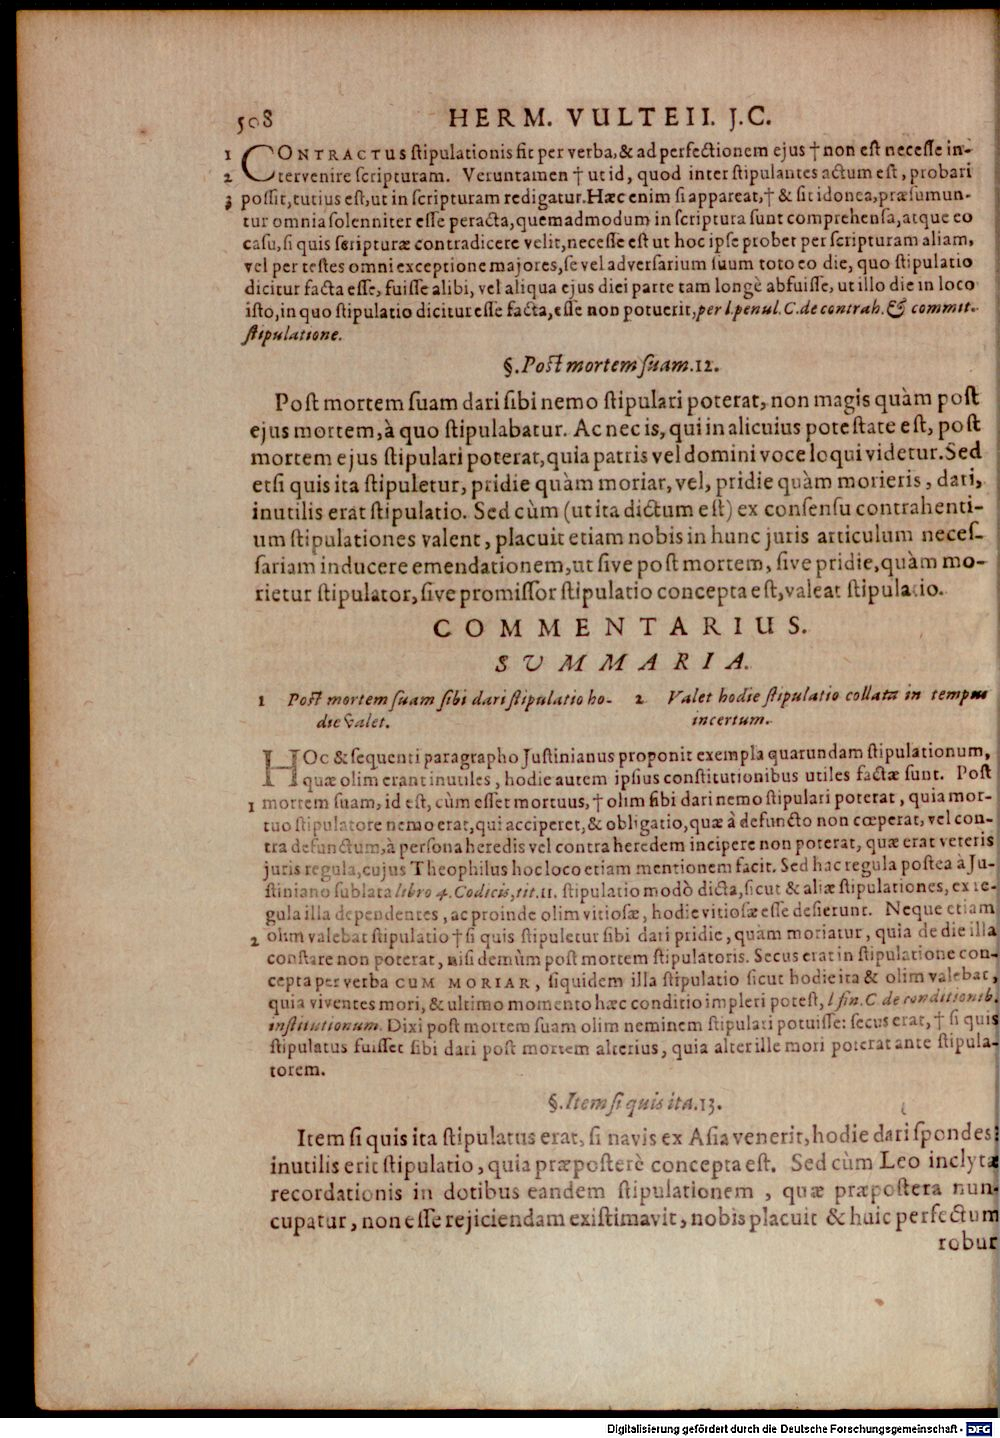 508 HERM. VULTEII. J.C.
1 CONTRACTUS stipulationis fit per verba, & ad perfectionem ejus † non est necesse in-
2 tervenire scripturam. Veruntamen † ut id, quod inter stipulantes actum est, probari
3 possit, tutius est, ut in scripturam redigatur. Hæc enim si appareat, † & sit idonea, præsumun-
tur omnia solenniter esse peracta, quemadmodum in scriptura sunt comprehensa, atque eo
casu, si quis scripturæ contradicere velit, necesse est ut hoc ipse probet per scripturam aliam,
vel per testes omni exceptione majores, se vel adversarium suum toto eo die, quo stipulatio
dicitur facta esse, fuisse alibi, vel aliqua ejus diei parte tam longè abfuisse, ut illo die in loco
isto, in quo stipulatio dicitur esse facta, esse non potuerit, per l. penul. C. de contrah. & commit.
stipulatione.
§. Post mortem suam. 12.
Post mortem suam dari sibi nemo stipulari poterat, non magis quàm post
ejus mortem, à quo stipulabatur. Ac nec is, qui in alicuius potestate est, post
mortem ejus stipulari poterat, quia patris vel domini voce loqui videtur. Sed
etsi quis ita stipuletur, pridie quàm moriar, vel, pridie quàm morieris, dari,
inutilis erat stipulatio. Sed cùm (ut ita dictum est) ex consensu contrahenti-
um stipulationes valent, placuit etiam nobis in hunc juris articulum neces-
sariam inducere emendationem, ut sive post mortem, sive pridie, quàm mo-
rietur stipulator, sive promissor stipulatio concepta est, valeat stipulatio.
COMMENTARIUS.
SUMMARIA.
1 Post mortem suam sibi dari stipulatio ho-
die valet.
2 Valet hodie stipulatio collata in tempus
incertum.
HOc & sequenti paragrapho Justinianus proponit exempla quarundam stipulationum,
quæ olim erant inutiles, hodie autem ipsius constitutionibus utiles factæ sunt. Post
1 mortem suam, id est, cùm esset mortuus, † olim sibi dari nemo stipulari poterat, quia mor-
tuo stipulatore nemo erat, qui acciperet, & obligatio, quæ à defuncto non cœperat, vel con-
tra defunctum, à persona heredis vel contra heredem incipere non poterat, quæ erat veteris
juris regula, cujus Theophilus hoc loco etiam mentionem facit. Sed hac regula postea à Ju-
stiniano sublata libro 4. Codicis, tit. 11. stipulatio modò dicta, sicut & aliæ stipulationes, ex re-
gula illa dependentes, ac proinde olim vitiosæ, hodie vitiosæ esse desierunt. Neque etiam
2 olim valebat stipulatio † si quis stipuletur sibi dari pridie, quàm moriatur, quia de die illa
constare non poterat, nisi demùm post mortem stipulatoris. Secus erat in stipulatione con-
cepta per verba CUM MORIAR, siquidem illa stipulatio sicut hodie ita & olim valebat,
quia viventes mori, & ultimo momento hæc conditio impleri potest, l. fin. C. de conditionib.
institutionum. Dixi post mortem suam olim neminem stipulari potuisse: secus erat, † si quis
stipulatus fuisset sibi dari post mortem alterius, quia alter ille mori poterat ante stipula-
torem.
§. Item si quis ita. 13.
Item si quis ita stipulatus erat, si navis ex Asia venerit, hodie dari spondes:
inutilis erit stipulatio, quia præposterè concepta est. Sed cùm Leo inclytæ
recordationis in dotibus eandem stipulationem, quæ præpostera nun-
cupatur, non esse rejiciendam existimavit, nobis placuit & huic perfectum
robur
Digitalisierung gefördert durch die Deutsche Forschungsgemeinschaft - DFG